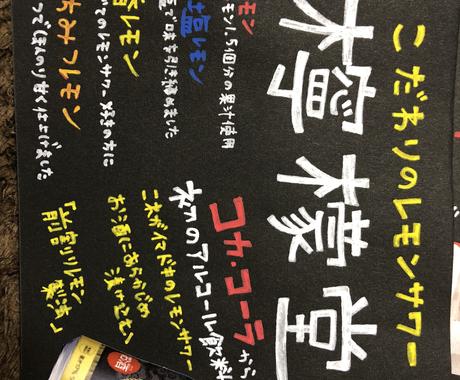 こだわりのレモンサワー
檸檬堂
レモン
レモン1.5個分の果汁使用
塩レモン
塩で味を引き締めました
レモン
のレモンサワー好きの方に
はちみつレモン
つでほのり甘く仕上げました
コカ・コーラから
初のアルコール飲料
これがイマドキのレモンサワー
お酒にあらかじめ
漬け込む
「前割りレモン
製法」